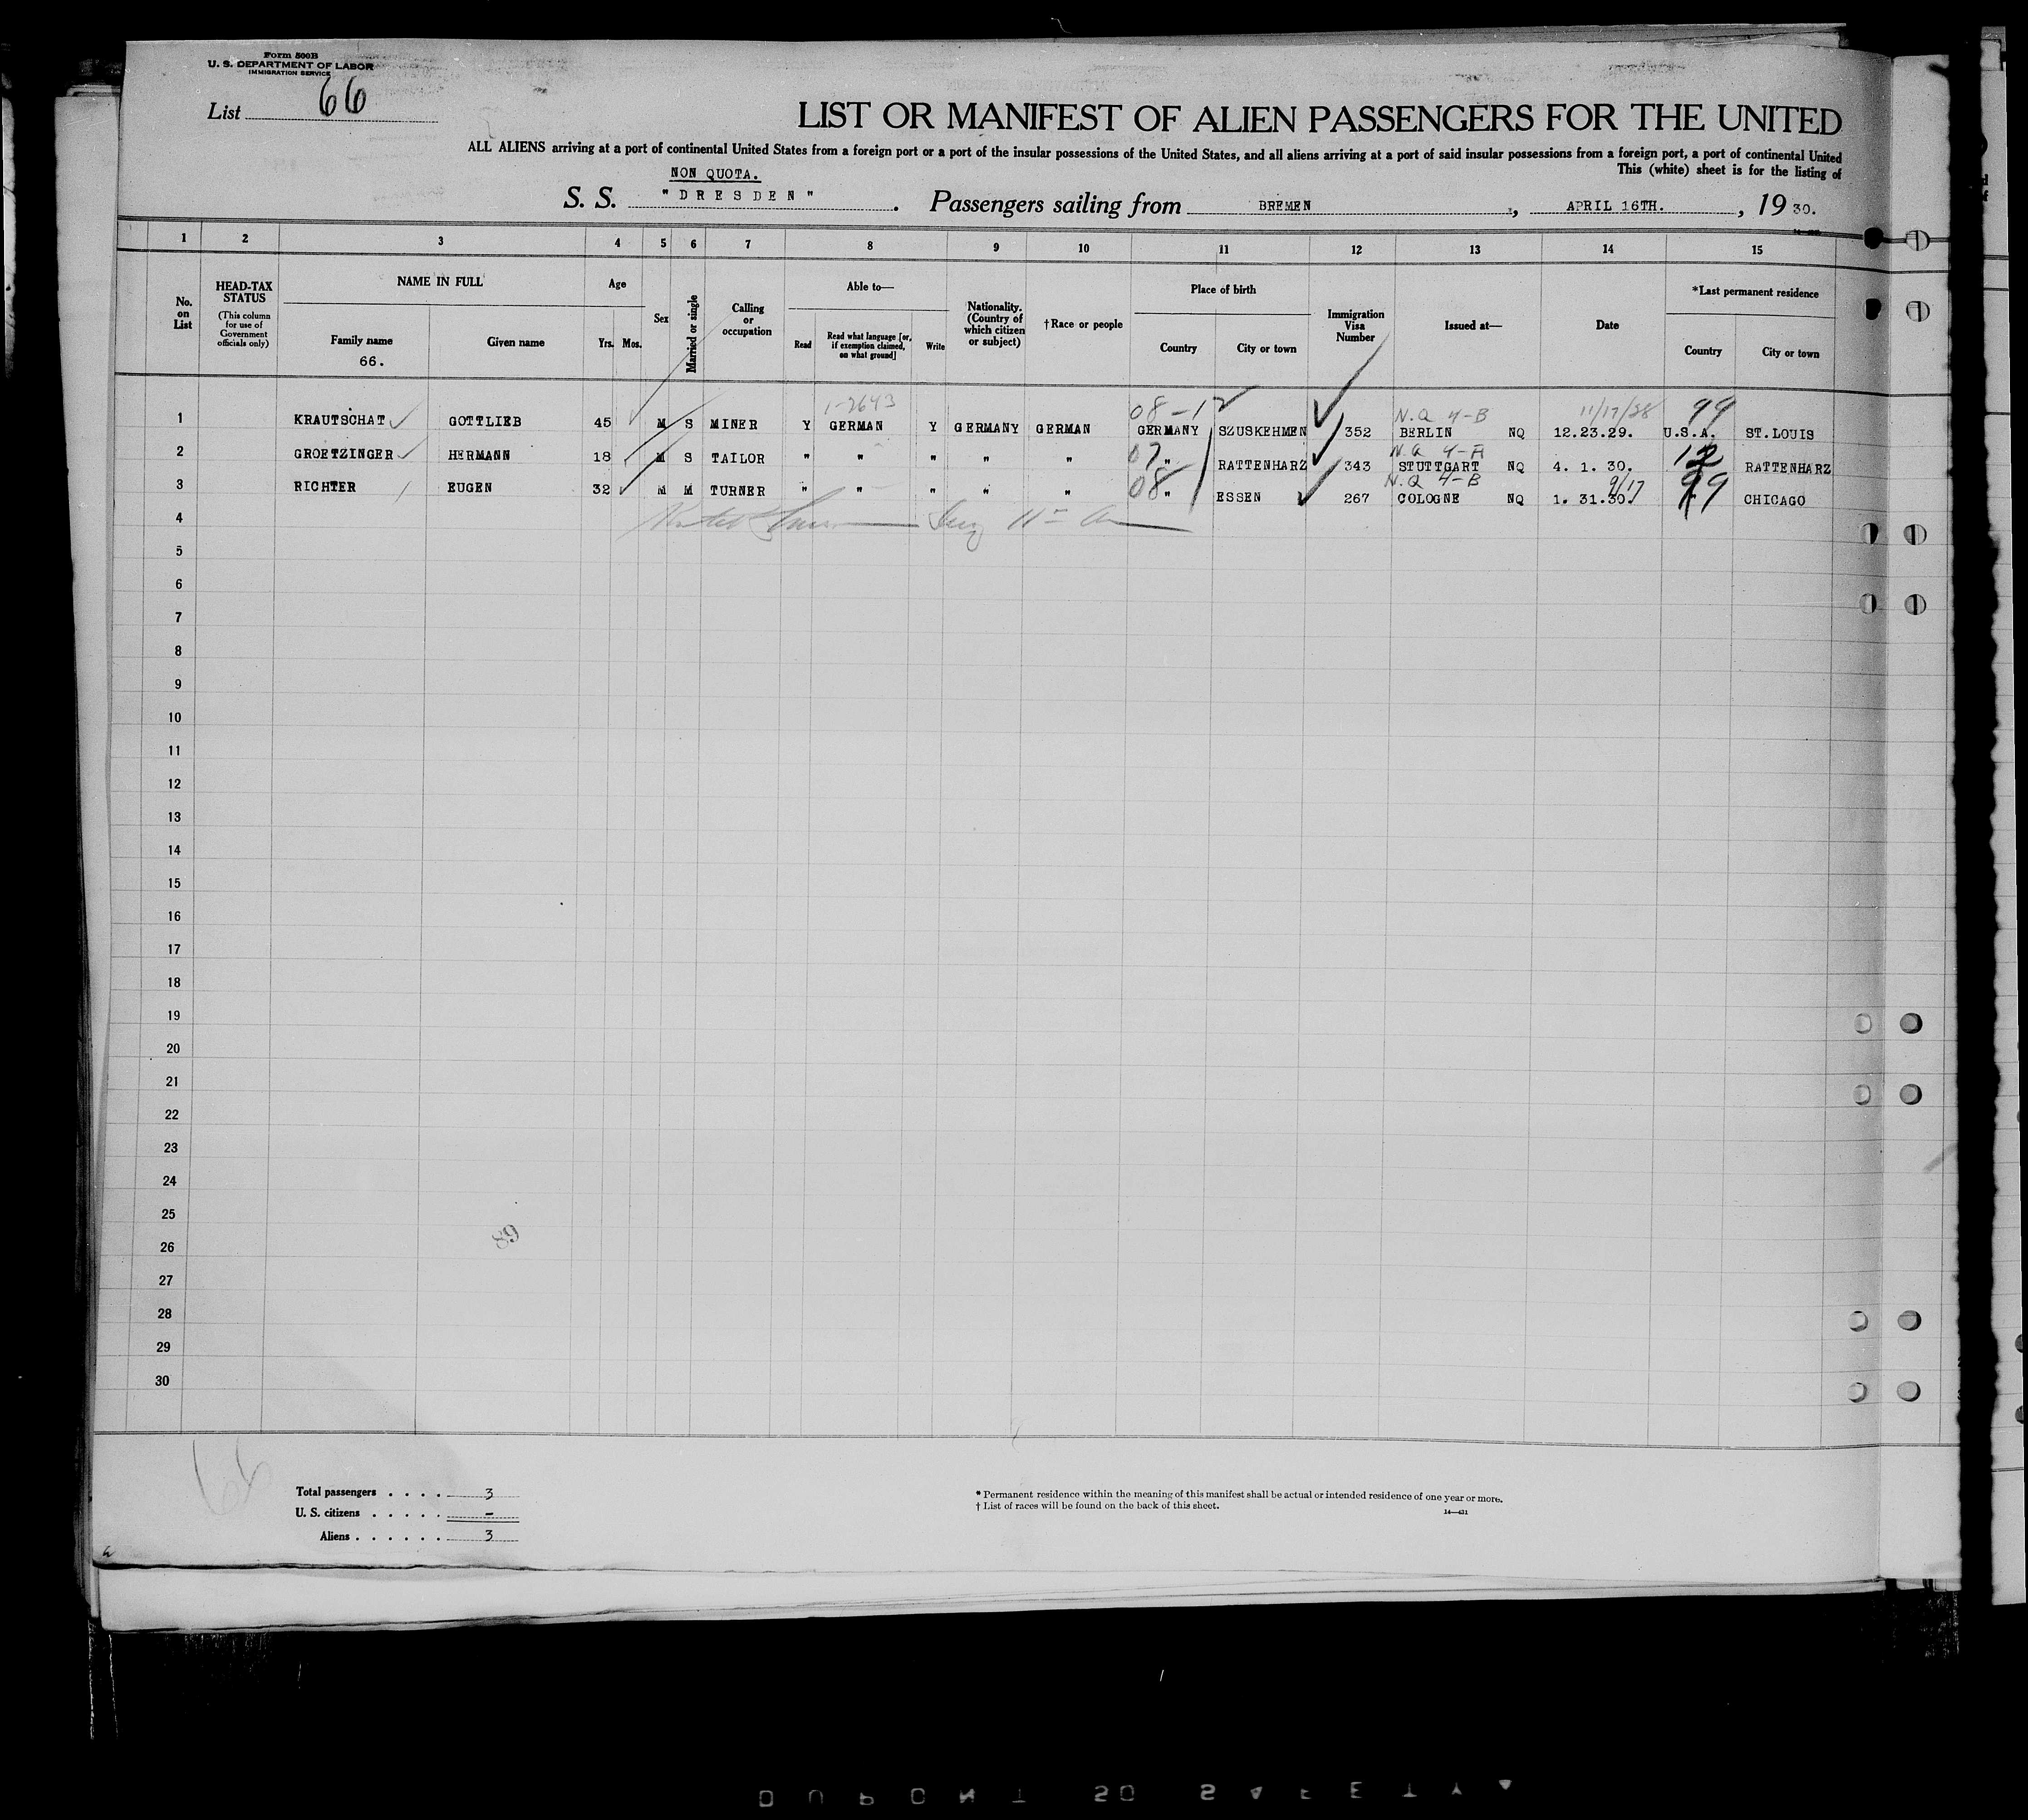 Form 500B
U. S. DEPARTMENT OF LABOR
IMMIGRATION SERVICE
List 66
LIST OR MANIFEST OF ALIEN PASSENGERS FOR THE UNITED
ALL ALIENS arriving at a port of continental United States from a foreign port or a port of the insular possessions of the United States, and all aliens arriving at a port of said insular possessions from a foreign port, a port of continental United
This (white) sheet is for the listing of
NON QUOTA.
S. S. "DRESDEN". Passengers sailing from BREMEN, APRIL 16TH., 1930.
1 2 3 4 5 6 7 8 9 10 11 12 13 14 15
No. on List
HEAD-TAX STATUS
(This column for use of Government officials only)
NAME IN FULL
Family name
66.
Given name
Age
Yrs. Mos.
Sex
Married or single
Calling or occupation
Able to—
Read
Read what language [or, if exemption claimed, on what ground]
Write
Nationality. (Country of which citizen or subject)
†Race or people
Place of birth
Country
City or town
Immigration Visa Number
Issued at—
Date
*Last permanent residence
Country
City or town
1-2643 08-12 N.Q 4-B 11/17/28 99
1 KRAUTSCHAT GOTTLIEB 45 M S MINER Y GERMAN Y GERMANY GERMAN GERMANY SZUSKEHMEN 352 BERLIN NQ 12.23.29. U.S.A. ST.LOUIS
07 N.Q 4-A 12
2 GROETZINGER HERMANN 18 M S TAILOR " " " " " " RATTENHARZ 343 STUTTGART NQ 4. 1. 30. RATTENHARZ
08 N.Q 4-B 9/17 99
3 RICHTER EUGEN 32 M M TURNER " " " " " " ESSEN 267 COLOGNE NQ 1. 31.30. CHICAGO
4
5
6
7
8
9
10
11
12
13
14
15
16
17
18
19
20
21
22
23
24
25
89
26
27
28
29
30
66
Total passengers . . . . 3
U. S. citizens . . . . . -
Aliens . . . . . . 3
* Permanent residence within the meaning of this manifest shall be actual or intended residence of one year or more.
† List of races will be found on the back of this sheet.
14—431
DUPONT SO SAFETY